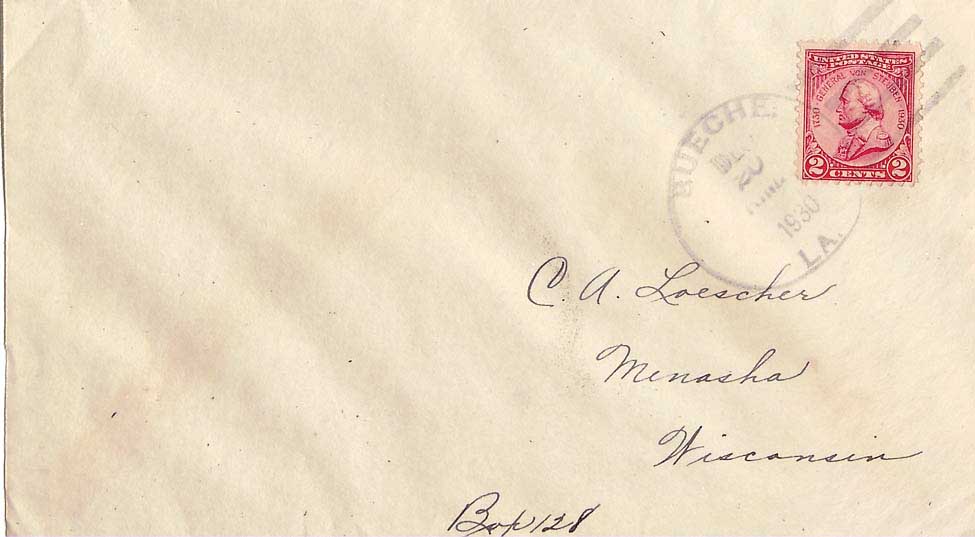 UNITED STATES
POSTAGE
GENERAL VON STEUBEN
1730
1930
2 CENTS 2
BUECHE
2
1930
LA.
C. A. Loescher
Menasha
Wisconsin
Box 128